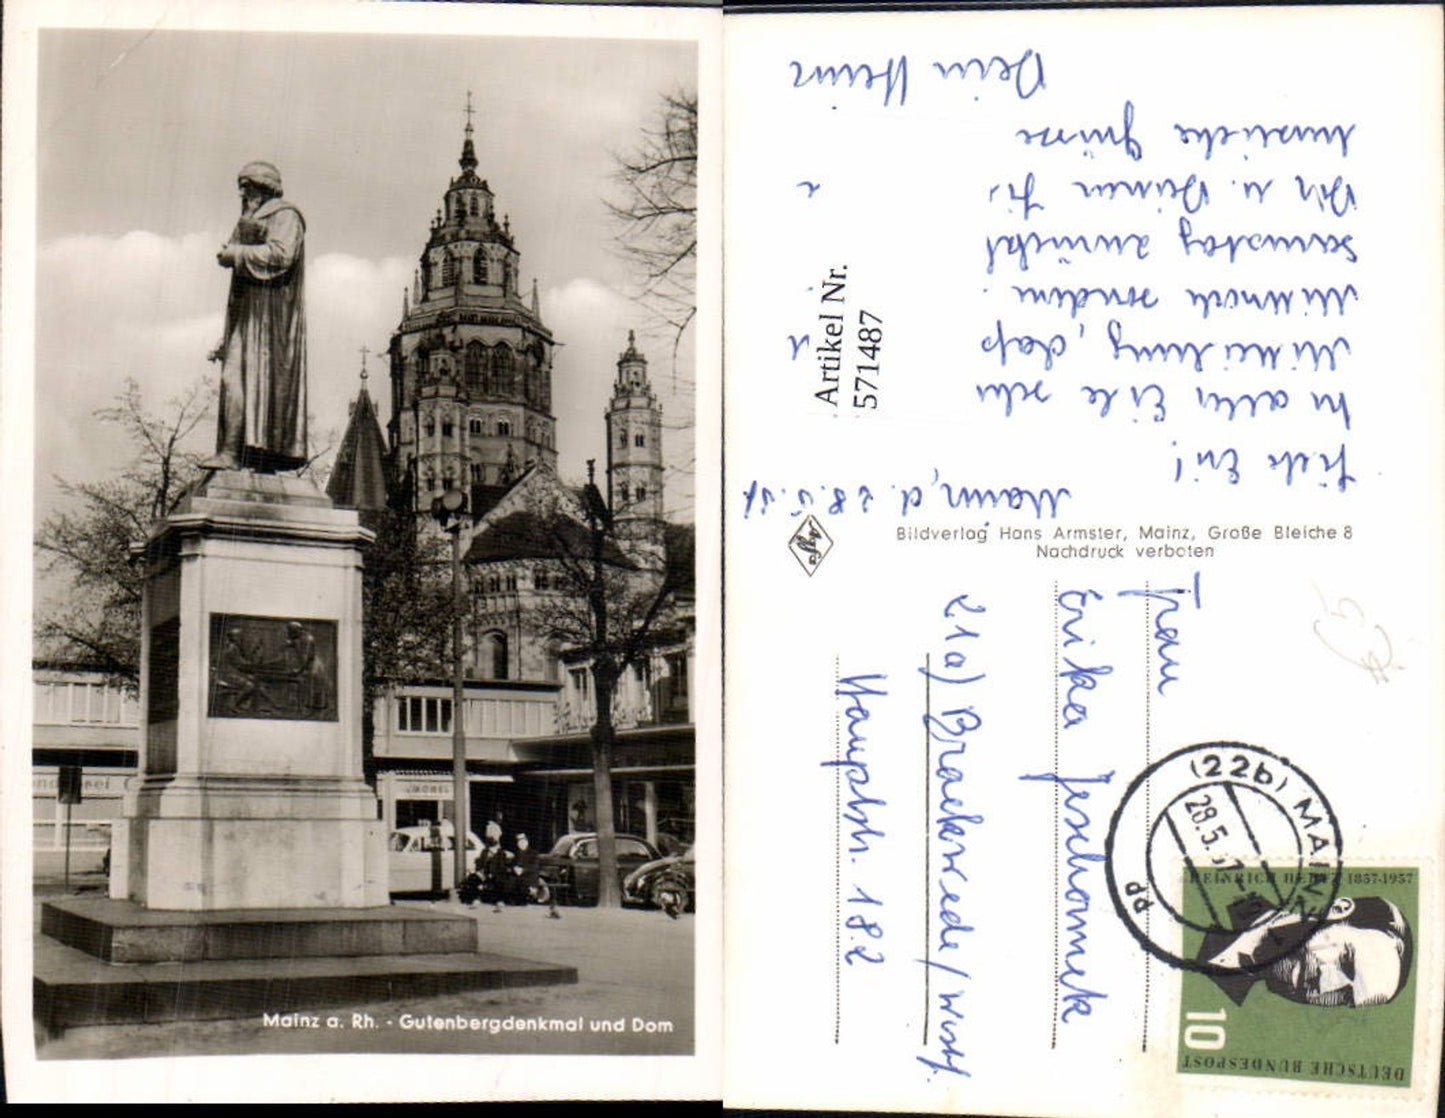 Mainz a. Rh. - Gutenbergdenkmal und Dom
NOBEL
Mainz, d. 28.5.57
In aller Eile
Mitteilung, daß
Mittwoch sondern
Samstag zurück
Dir u. Deinen
herzliche Grüsse
Dein Heinz
Artikel Nr.
571487
Bildverlag Hans Armster, Mainz, Große Bleiche 8
Nachdruck verboten
Agfa
Frau
Erika Jeschomek
21a) Brackwede/Westf.
Hauptstr. 182
(22b) MAINZ
28.5.57
pp
HEINRICH HERTZ 1857-1957
10
DEUTSCHE BUNDESPOST